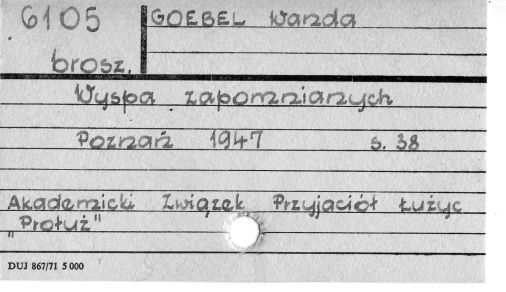 6105
brosz.
GOEBEL Wanda
Wyspa zapomnianych
Poznań 1947 s. 38
Akademicki Związek Przyjaciół Łużyc
"Prołuż"
DUJ 867/71 5 000